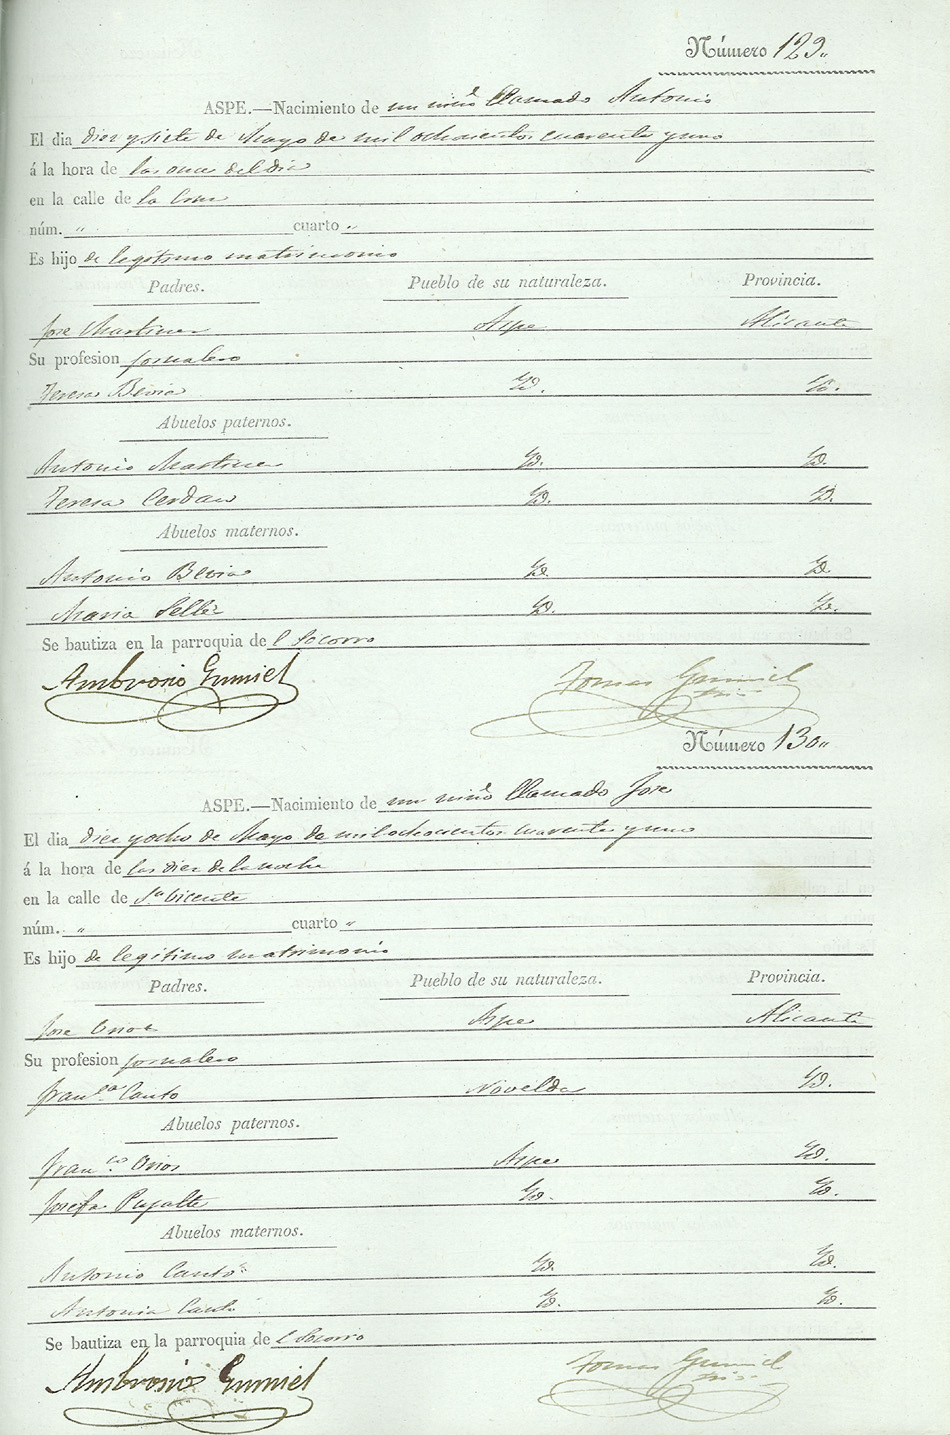 Número 129"
ASPE.—Nacimiento de un niño llamado Antonio
El dia diez y siete de Mayo de mil ochocientos cuarenta y uno
á la hora de las once del dia
en la calle de la Cruz
núm. " cuarto "
Es hijo de legitimo matrimonio
Padres. Pueblo de su naturaleza. Provincia.
Jose Martinez Aspe Alicante
Su profesion jornalero
Teresa Bevia Yd. Yd.
Abuelos paternos.
Antonio Martinez Yd. Yd.
Teresa Cerdan Yd. Yd.
Abuelos maternos.
Antonio Bevia Yd. Yd.
Maria Seller Yd. Yd.
Se bautiza en la parroquia de l Socorro
Ambrosio Gumiel Tomas Gumiel
Número 130"
ASPE.—Nacimiento de un niño llamado Jose
El dia diez y ocho de Mayo de mil ochocientos cuarenta y uno
á la hora de las diez de la noche
en la calle de Sn Vicente
núm. " cuarto "
Es hijo de legitimo matrimonio
Padres. Pueblo de su naturaleza. Provincia.
Jose Aspe Alicante
Su profesion jornalero
Franca Canto Novelda Yd.
Abuelos paternos.
Franco Aspe Yd.
Josefa Pujalte Yd. Yd.
Abuelos maternos.
Antonio Cantó Yd. Yd.
Antonia Cantó Yd. Yd.
Se bautiza en la parroquia de l Socorro
Ambrosio Gumiel Tomas Gumiel